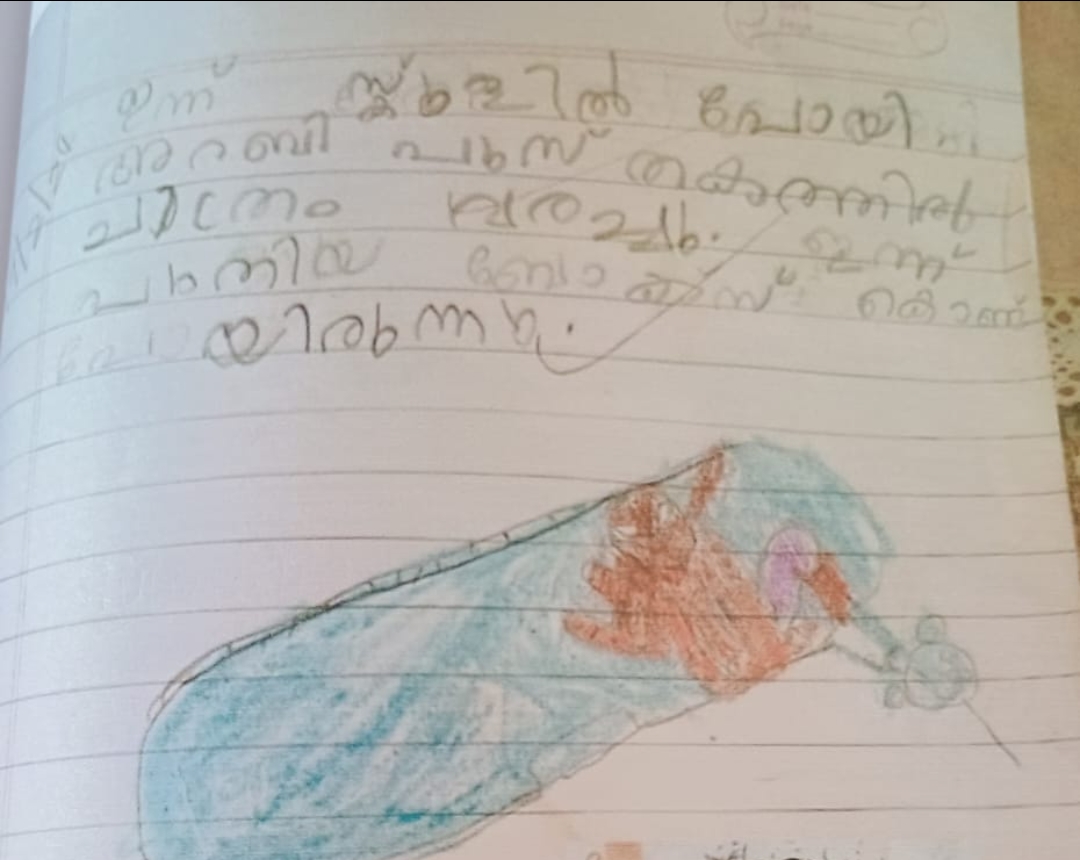 ഇന്ന് സ്കൂളിൽ പോയി
അറബി പുസ് തകത്തിൽ
ചിത്രം വരച്ചു. ഇന്ന്
പുതിയ ബോക്സ് കൊണ്ട്
പോ യിരുന്നു.